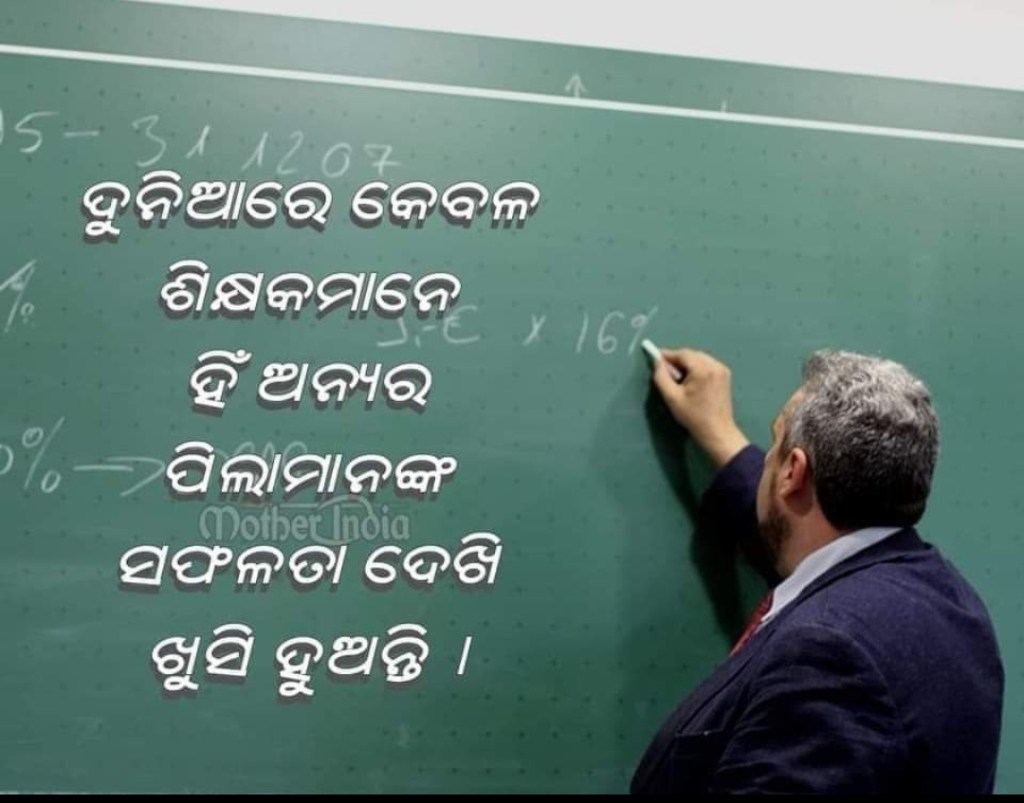 15 - 31 1207
ଦୁନିଆରେ କେବଳ
ଶିକ୍ଷକମାନେ
x 16%
ହିଁ ଅନ୍ୟର
ପିଲାମାନଙ୍କ
Mother India
ସଫଳତା ଦେଖି
ଖୁସି ହୁଅନ୍ତି ।